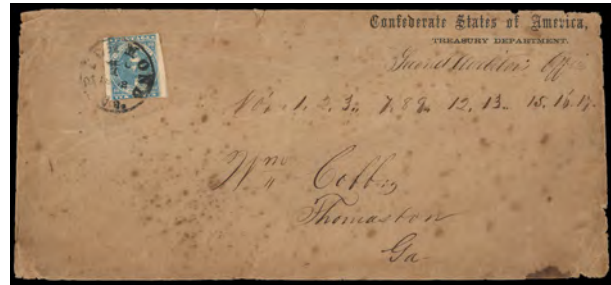 Confederate States of America,
TREASURY DEPARTMENT.
Second Auditor's Office
MOND
Nos. 1. 2. 3. 7. 8 9. 12. 13. 15. 16. 17.
Wm
Thomaston
Ga